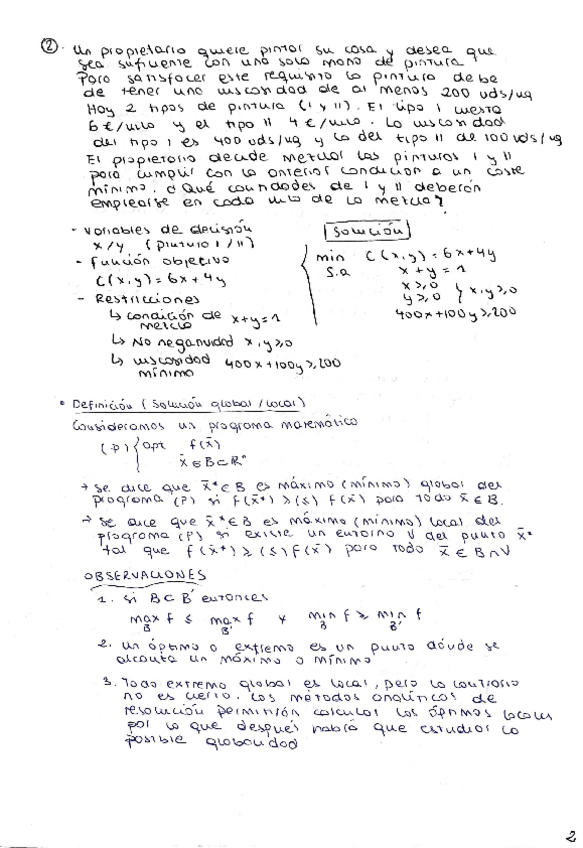 ② · Un propietario quiere pintar su casa y desea que
sea suficiente con una sola mano de pintura
Para satisfacer este requisito la pintura debe
de tener una viscosidad de al menos 200 uds/ug
Hay 2 tipos de pintura (I y II). El tipo I cuesta
6 €/kilo y el tipo II 4 €/kilo. La viscosidad
del tipo I es 400 uds/ug y la del tipo II de 100 uds/ug
El propietario decide mezclar las pinturas I y II
para cumplir con la anterior condición a un coste
mínimo. ¿Qué cantidades de I y II deberán
emplearse en cada kilo de la mezcla?
- Variables de decisión
x/y (pintura I/II)
- Función objetivo
C(x,y)=6x+4y
- Restricciones
↳ condición de mezcla x+y=1
↳ No negatividad x,y≥0
↳ viscosidad mínima 400x+100y≥200
Solución
min C(x,y)=6x+4y
s.a x+y=1
x≥0
y≥0 } x,y≥0
400x+100y≥200
• Definición (Solución global/local)
Consideramos un programa matemático
(P) { opt f(x̄)
x̄∈B⊂ℝⁿ
→ Se dice que x̄*∈B es máximo (mínimo) global del
programa (P) si f(x̄*) ≥(≤) f(x̄) para todo x̄∈B.
→ Se dice que x̄*∈B es máximo (mínimo) local del
programa (P) si existe un entorno V del punto x̄*
tal que f(x̄*)≥(≤)f(x̄) para todo x̄∈B∩V
OBSERVACIONES
1. Si B⊂B' entonces
max f ≤ max f y min f ≥ min f
B B' B B'
2. Un óptimo o extremo es un punto dónde se
alcanza un máximo o mínimo
3. Todo extremo global es local, pero lo contrario
no es cierto. Los métodos analíticos de
resolución permitirán calcular los óptimos locales
por lo que después habrá que estudiar la
posible globalidad
2